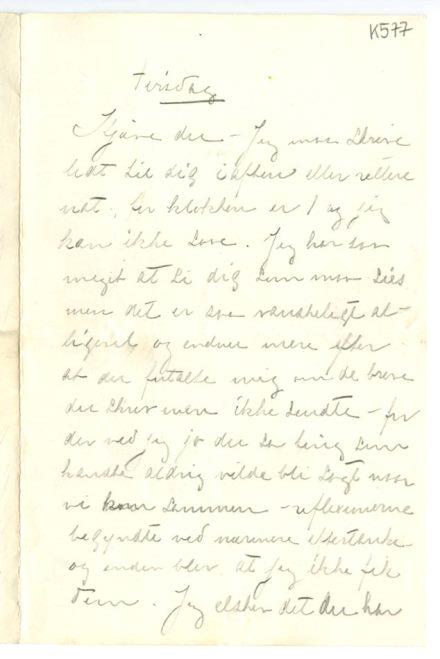 K577
Tirsdag
Kjære du – Jeg maa skrive
lidt til dig iaften eller rettere
nat, for klokken er 1 og jeg
kan ikke sove. Jeg har saa
meget at si dig som maa sies
men det er saa vanskeligt al-
ligevel og endnu mere efter
at du fortalte mig om de breve
du skrev men ikke sendte – for
der ved jeg jo du sa ting som
kanske aldrig vilde bli sagt naar
vi kom sammen – refleksionerne
begyndte ved nærmere eftertanke
og enden blev at jeg ikke fik
dem. Jeg elsker det du har